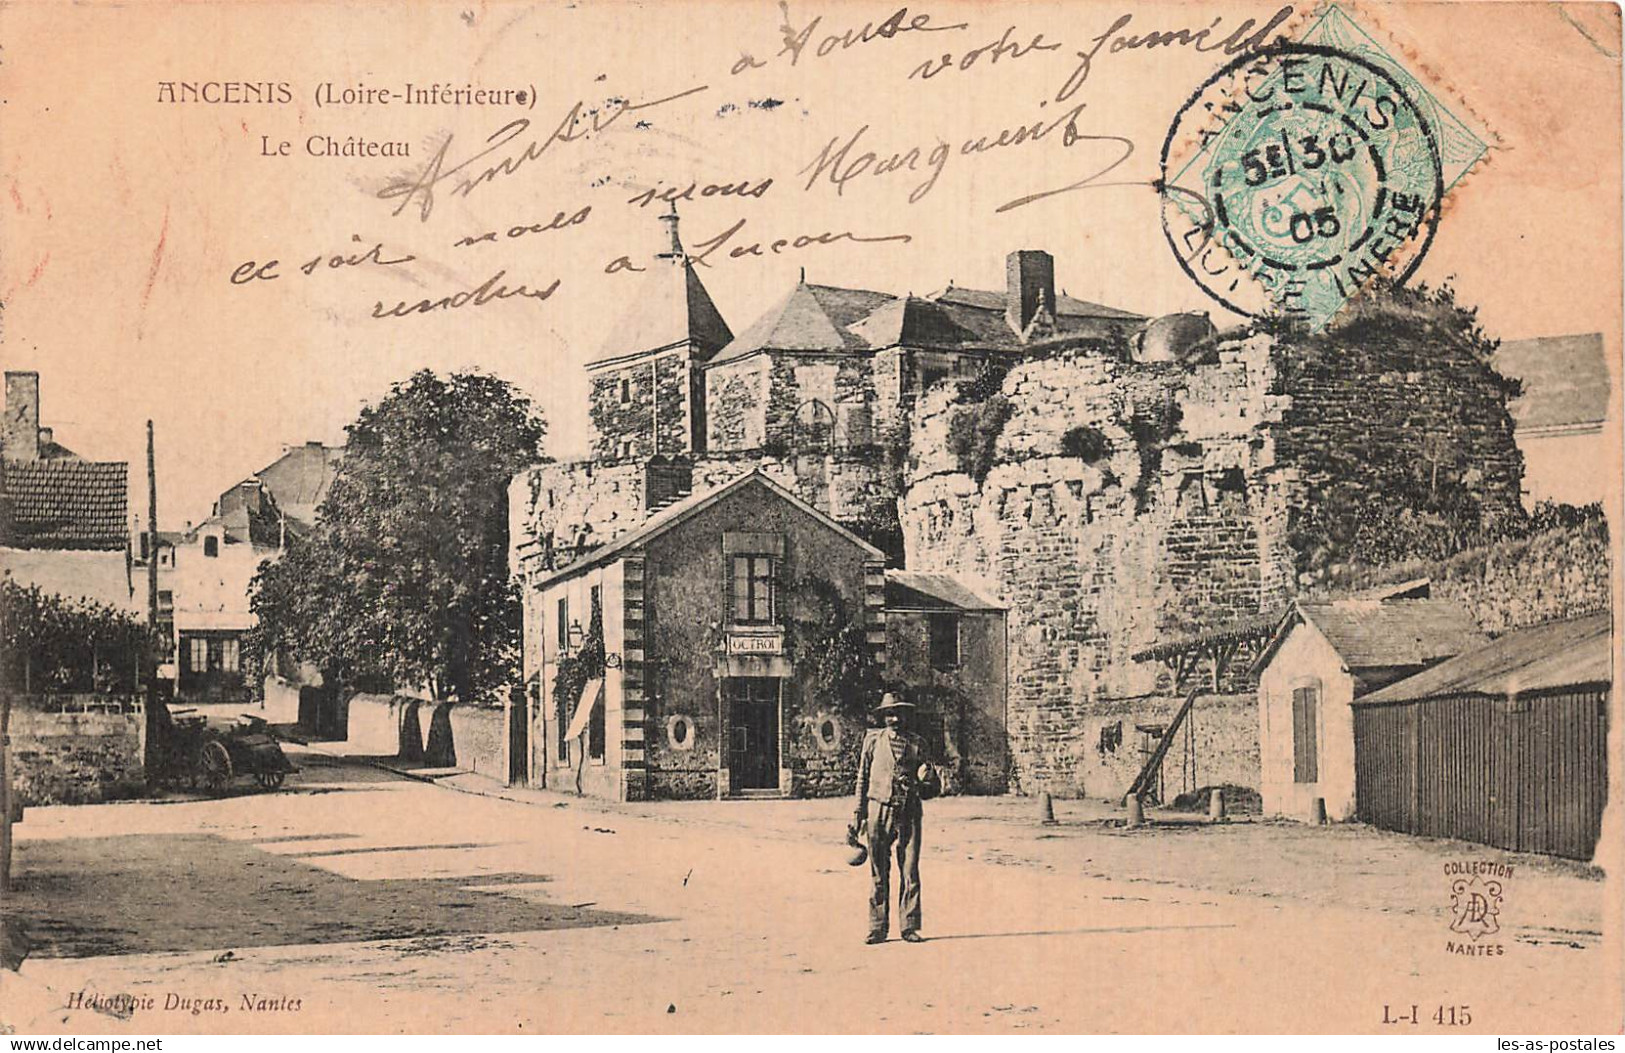 ANCENIS (Loire-Inférieure)
Le Château
Amitié a touse
votre famille
ce soir nous serons Marguerit
rendus a Luçon
ANCENIS
5E/30
05
LOIRE INFRE
5
OCTROI
COLLECTION
AD
NANTES
Héliotypie Dugas, Nantes
L-I 415
les-as-postales